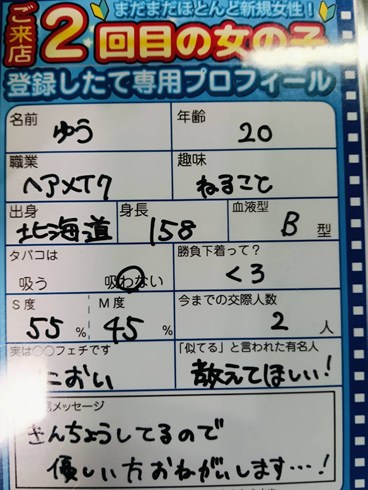 まだまだほとんど新規女性!
ご来店2回目の女の子
登録したて専用プロフィール
名前 ゆう 年齢 20
職業 ヘアメイク 趣味 ねること
出身 北海道 身長 158 血液型 B 型
タバコは 吸う 吸わない 勝負下着って? くろ
S度 55 % M度 45 % 今までの交際人数 2 人
実は○○フェチです におい 「似てる」と言われた有名人 教えてほしい!
メッセージ
きんちょうしてるので
優しい方おねがいします…!